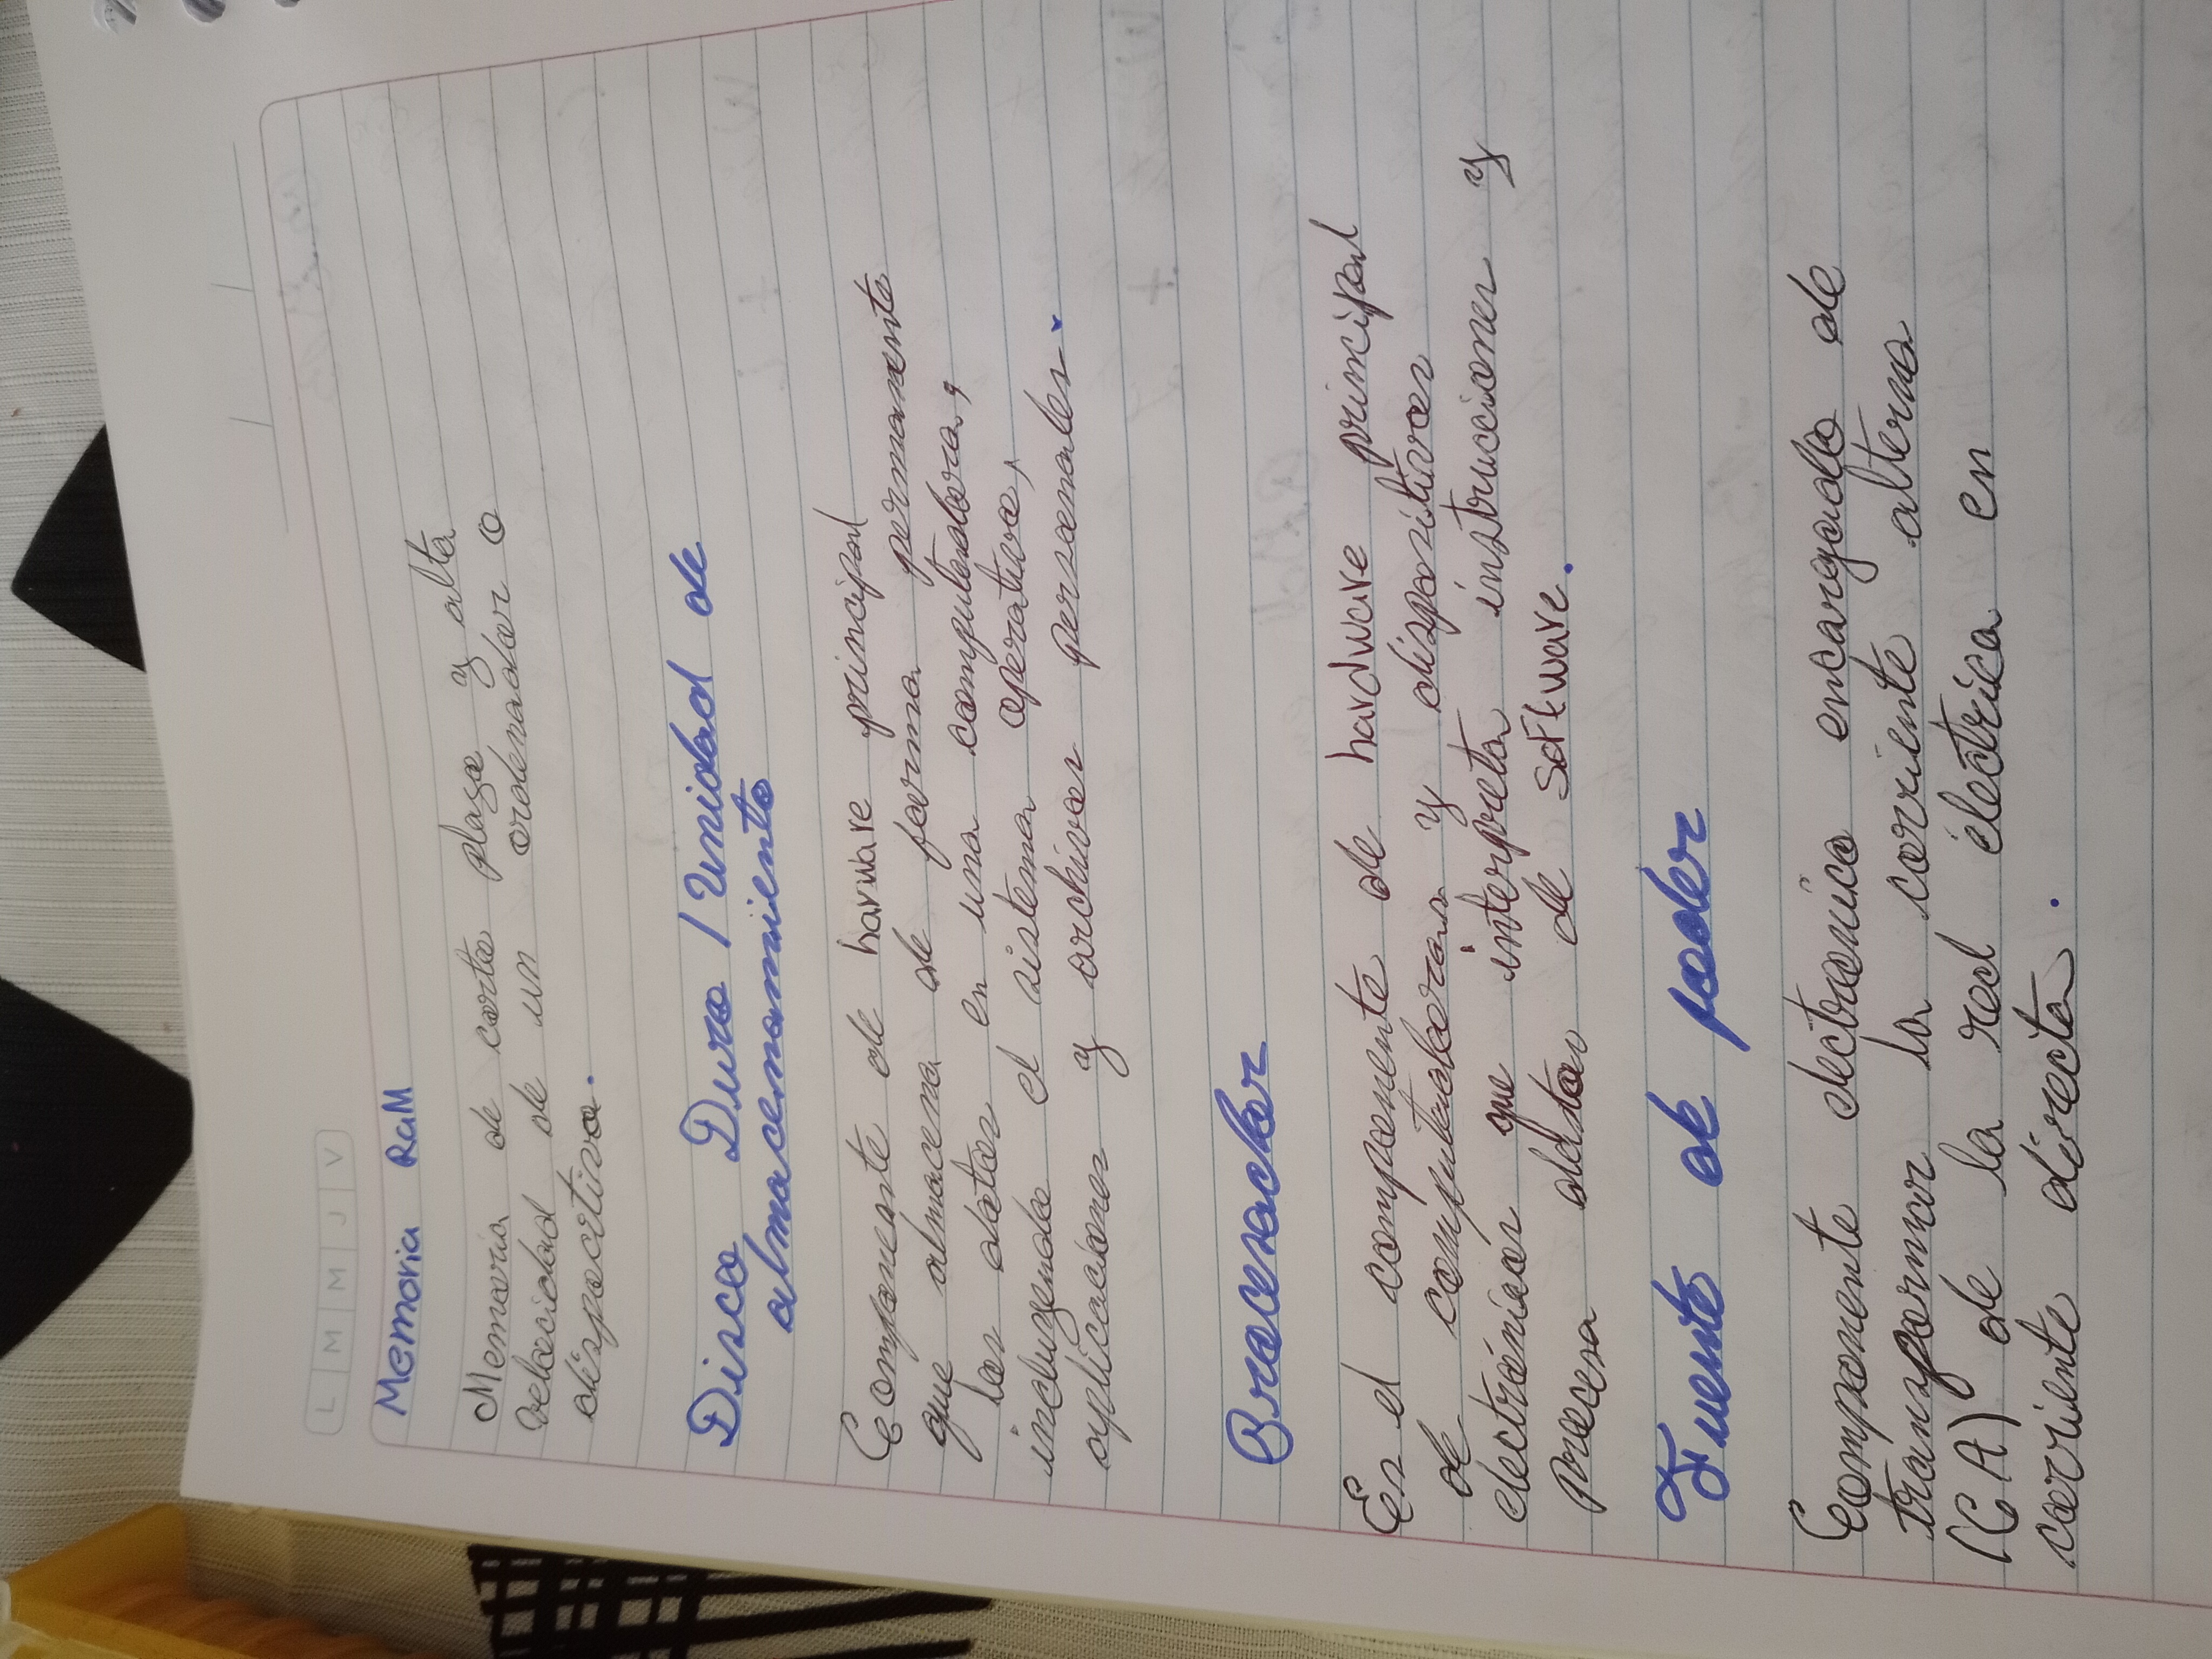 L M M J V
Memoria RaM
Memoria de corto plazo y alta
velocidad de un ordenador o
dispocitivo.
Disco Duro / Unidad de
almacenamiento
Componente de harware principal
que almacena de forma permanente
los datos en una computadora,
incluyendo el sistema operativo,
aplicaciones y archivos personales.
Procesador
Es el componente de hardware principal
de computadoras y dispositivos
electrónicos que interpreta instrucciones y
procesa datos de software.
Fuente de poder
Componente electronico encargado de
transformar la corriente alterna
(CA) de la red électrica en
corriente directa.